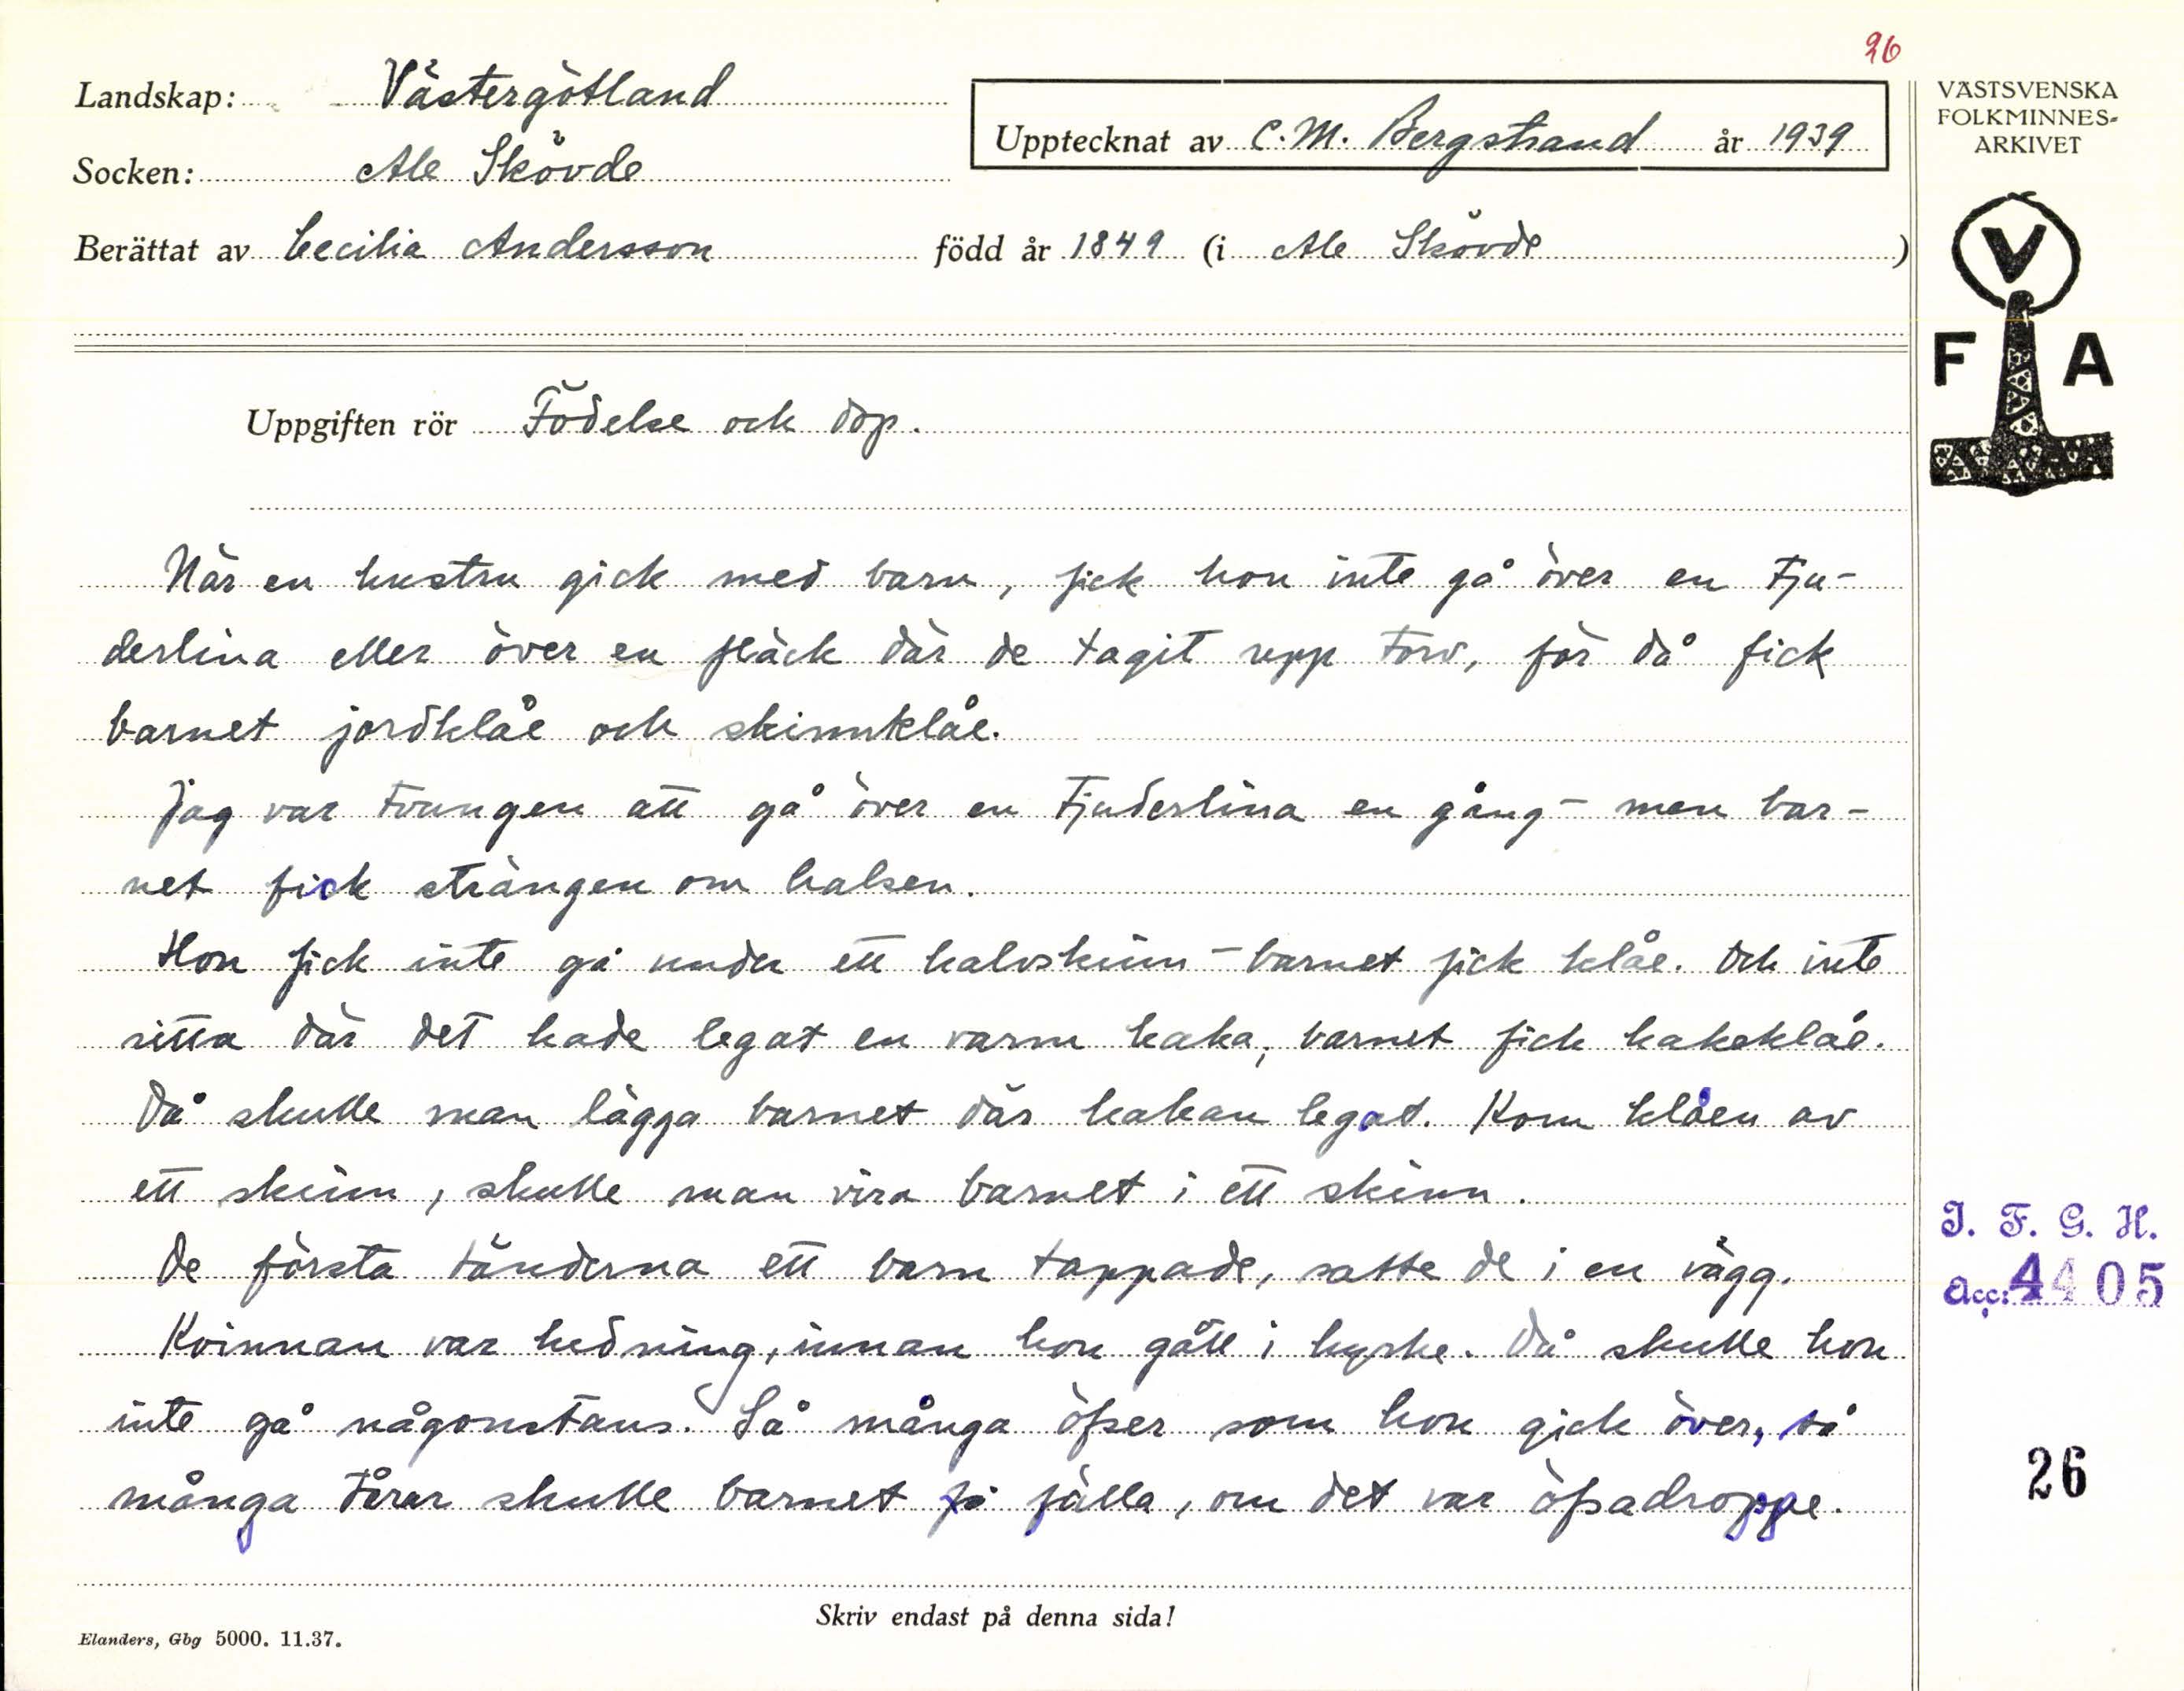 26
Landskap: Västergötland
Socken: Ale Skövde
Upptecknat av C. M. Bergstrand år 1939
Berättat av Cecilia Andersson född år 1849 (i Ale Skövde)
VÄSTSVENSKA
FOLKMINNES-
ARKIVET
V
F A
Uppgiften rör Födelse och dop.
När en hustru gick med barn, fick hon inte gå över en tju-
derlina eller över en fläck där de tagit upp torv, för då fick
barnet jordklåe och skinnklåe.
Jag var tvungen att gå över en tjuderlina en gång - men bar-
net fick strängen om halsen.
Hon fick inte gå under ett kalvskinn - barnet fick klåe. Och inte
sitta där det hade legat en varm kaka, barnet fick kakeklåe.
Då skulle man lägga barnet där kakan legat. Kom klåen av
ett skinn, skulle man vira barnet i ett skinn.
De första tänderna ett barn tappade, satte de i en vägg.
Kvinnan var hedning, innan hon gått i kyrke. Då skulle hon
inte gå någonstans. Så många öfser som hon gick över, så
många tårar skulle barnet få fälla, om det var öfsadroppe.
J. F. G. H.
Acc: 4405
26
Skriv endast på denna sida!
Elanders, Gbg 5000. 11.37.